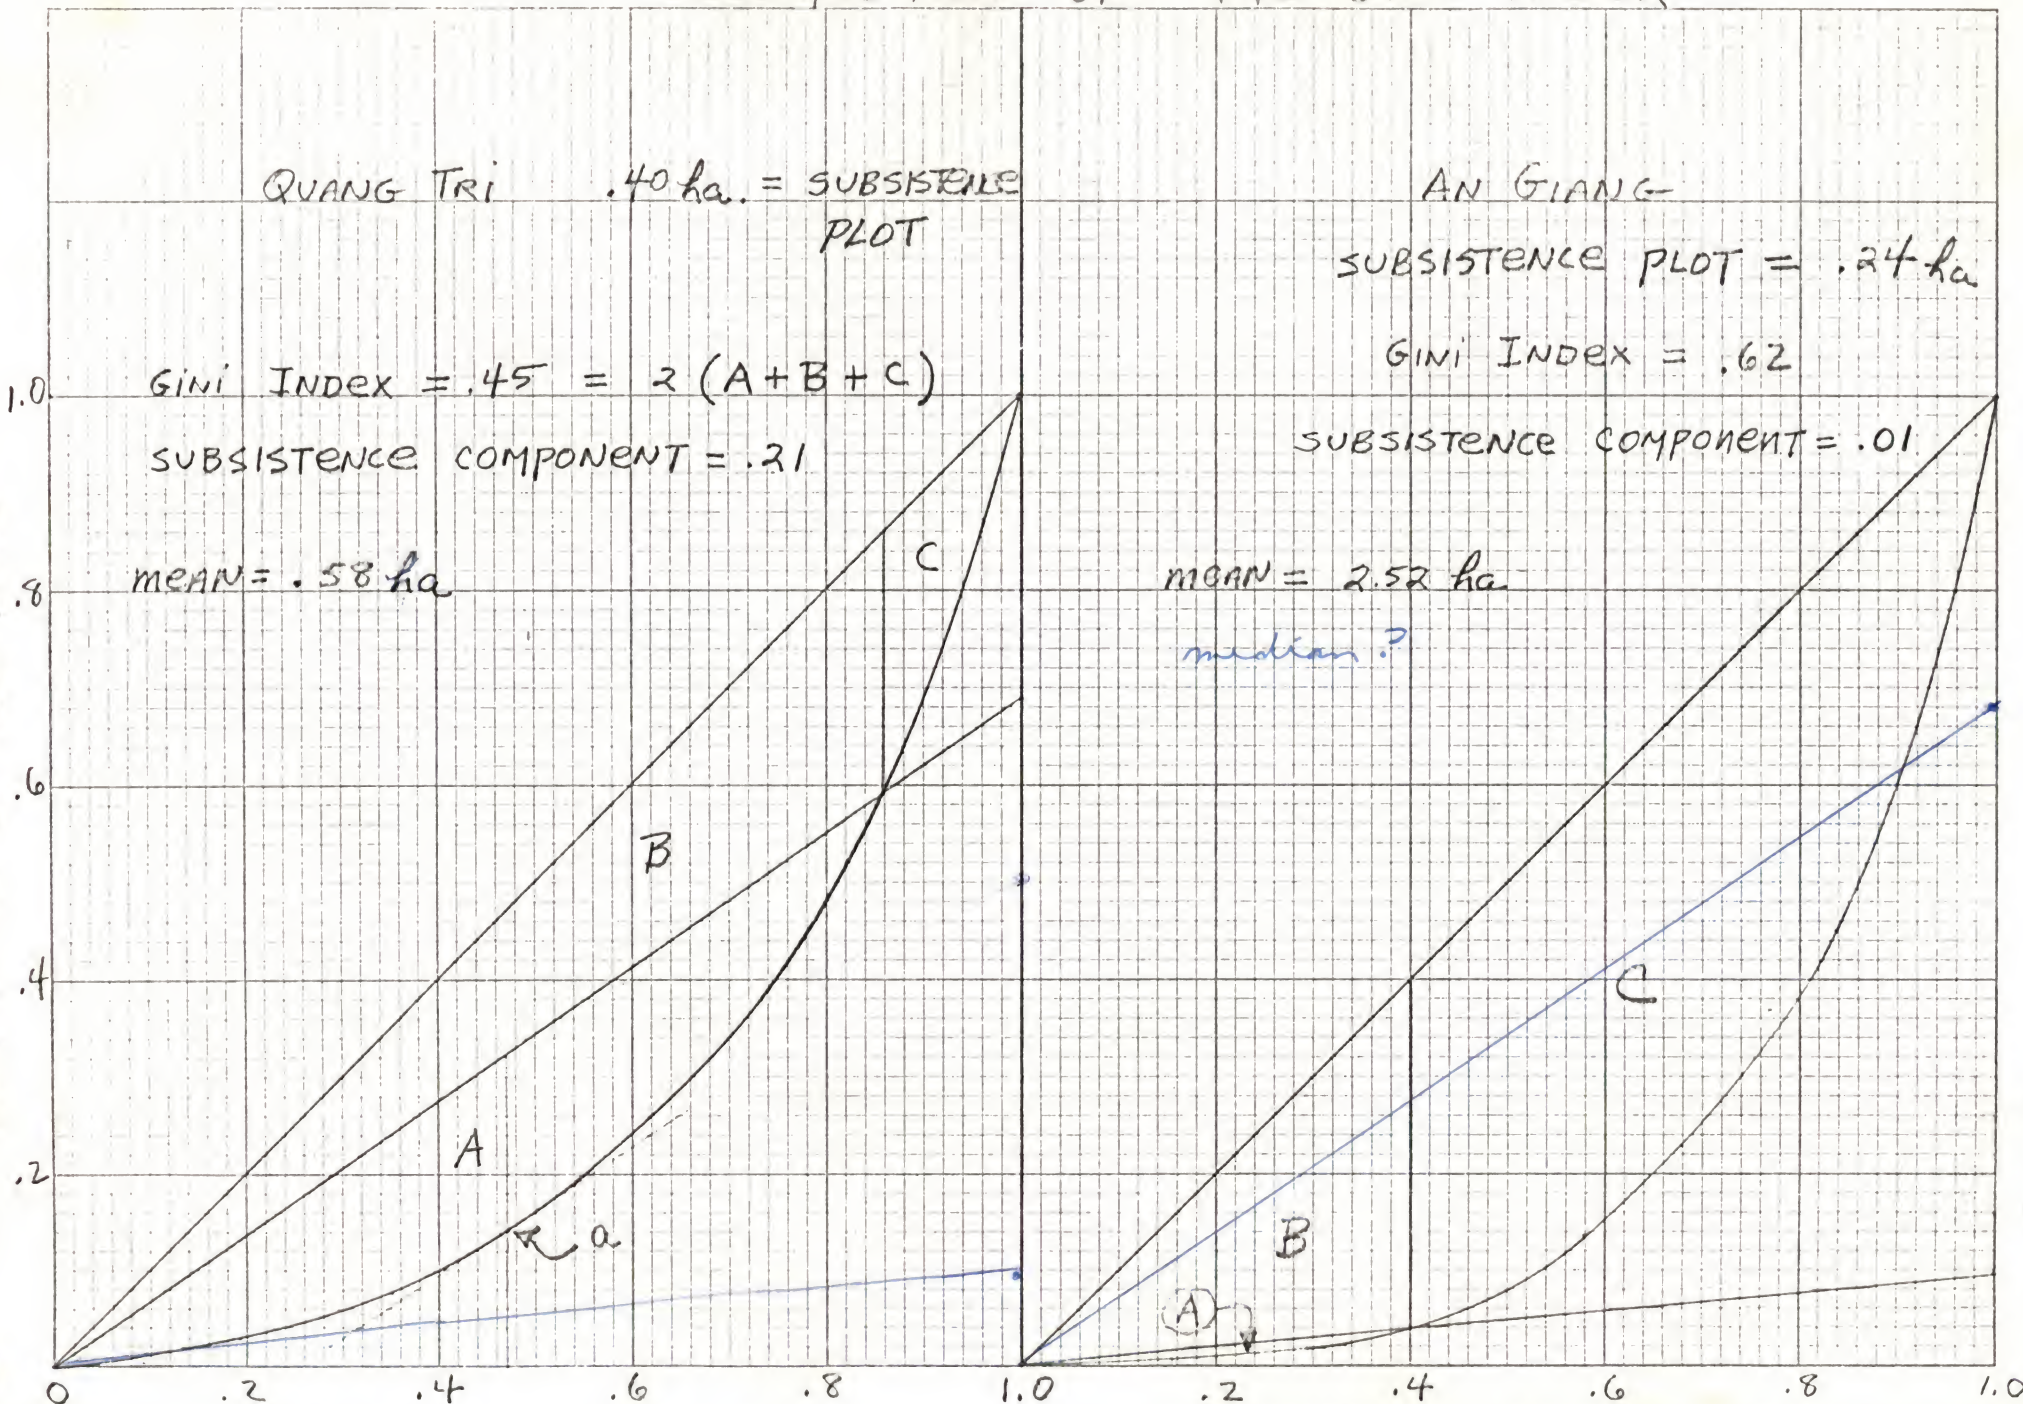 QUANG TRI .40 ha. = SUBSISTENCE
PLOT
GINI INDEX = .45 = 2 (A + B + C)
SUBSISTENCE COMPONENT = .21
MEAN = .58 ha
AN GIANG
SUBSISTENCE PLOT = .24 ha
GINI INDEX = .62
SUBSISTENCE COMPONENT = .01
MEAN = 2.52 ha
median ?
1.0
.8
.6
.4
.2
C
B
A
a
C
B
A
0 .2 .4 .6 .8 1.0 .2 .4 .6 .8 1.0